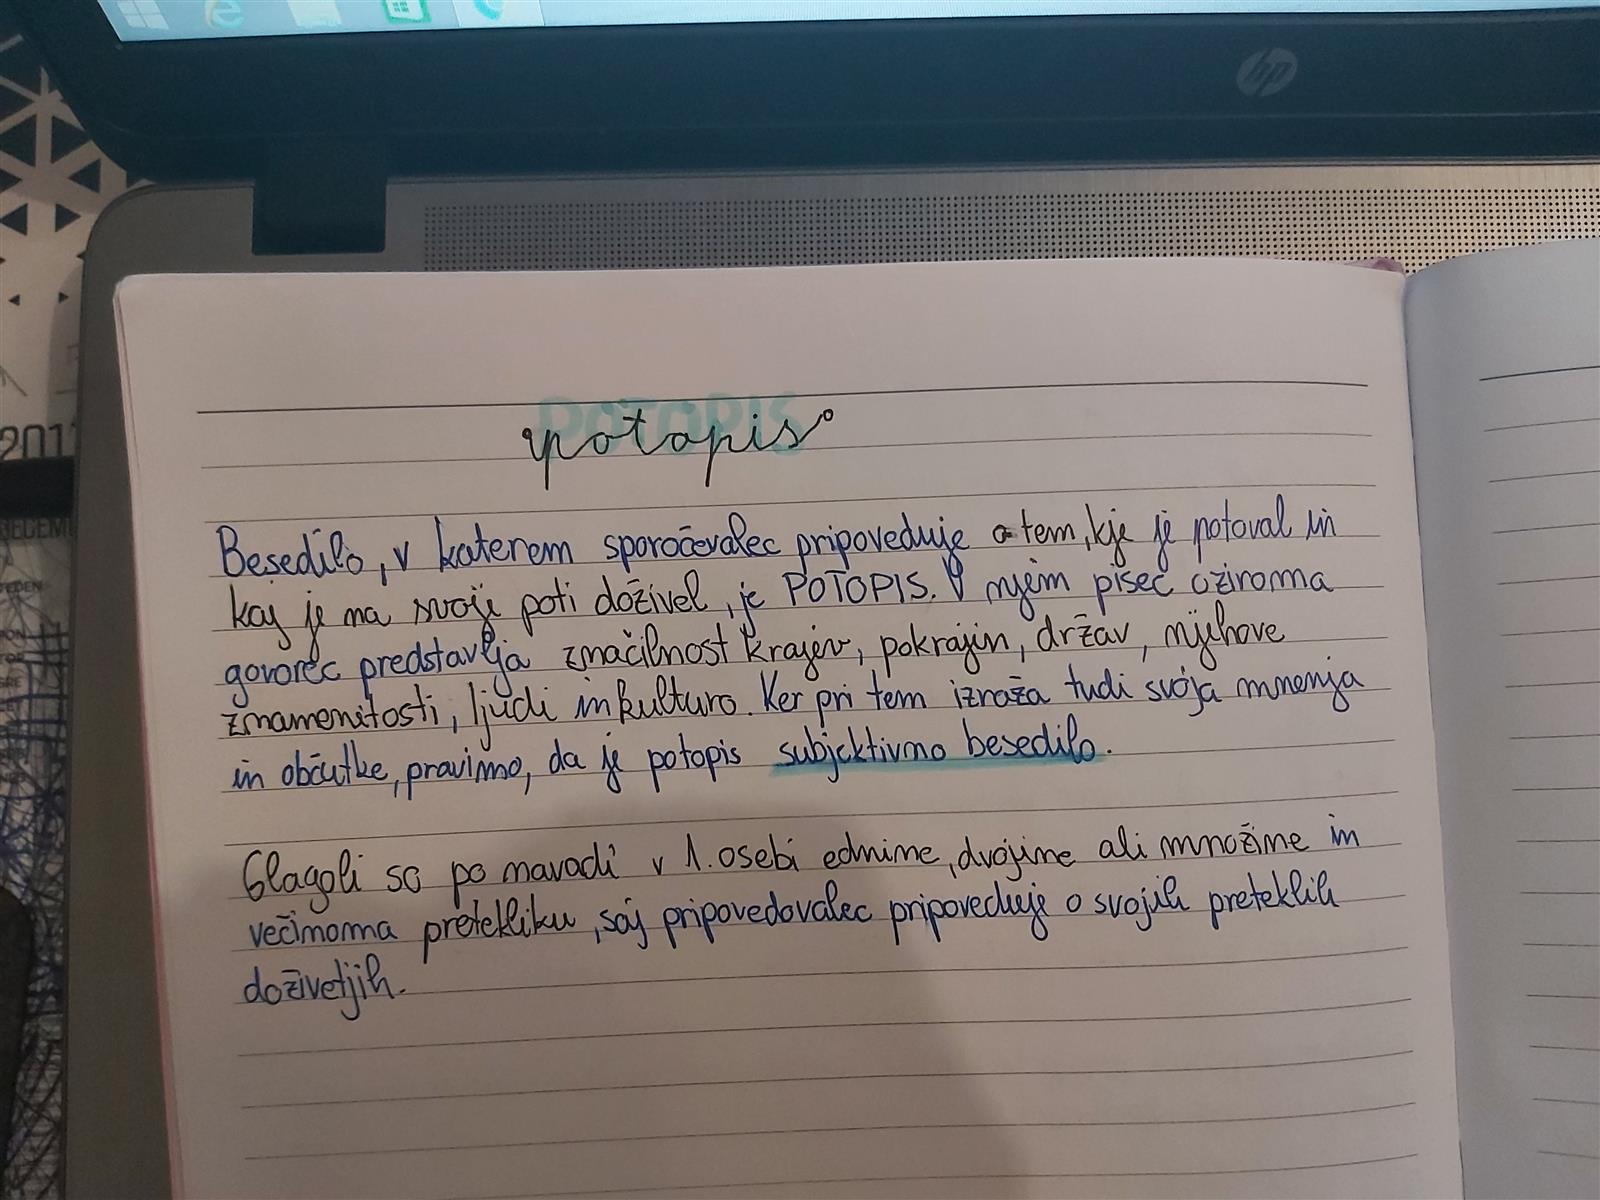 hp
POTOPIS
potopis
Besedilo, v katerem sporočevalec pripoveduje o tem, kje je potoval in
kaj je na svoji poti doživel, je POTOPIS. V njem pisec oziroma
govorec predstavlja značilnost krajev, pokrajin, držav, njihove
znamenitosti, ljudi in kulturo. Ker pri tem izraža tudi svoja mnenja
in občutke, pravimo, da je potopis subjektivno besedilo.
Glagoli so po navadi v 1. osebi ednine, dvojine ali množine in
večinoma pretekliku, saj pripovedovalec pripoveduje o svojih preteklih
doživetjih.